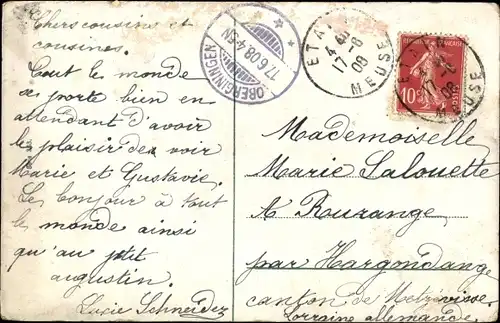 Chers cousins et
cousines.
Tout le monde
se porte bien en
attendant d'avoir
le plaisir de voir
Marie et Gustavie.
Le bonjour à tout
le monde ainsi
qu'au ptit
augustin.
Lucie Schneider
OBERGININGEN
17.6.08 4-5N
ETA
4 40
17-6
08
MEUSE
10c
POSTES
Mademoiselle
Marie Lalouette
A Rurange
par Hargondange
canton de
Lorraine allemande.